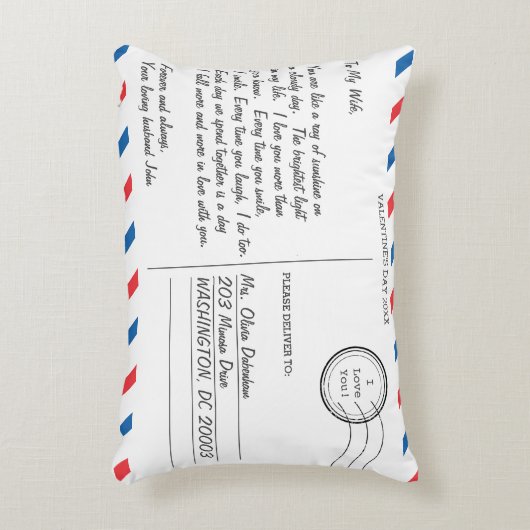 To My Wife,
You are like a ray of sunshine on
a cloudy day. The brightest light
in my life. I love you more than
you know. Every time you smile,
I smile. Every time you laugh, I do too.
Each day we spend together is a day
I fall more and more in love with you.
Forever and always,
Your loving husband John
VALENTINE'S DAY 20XX
I
Love
You!
PLEASE DELIVER TO:
Mrs. Olivia Dabenham
203 Mimosa Drive
WASHINGTON, DC 20003